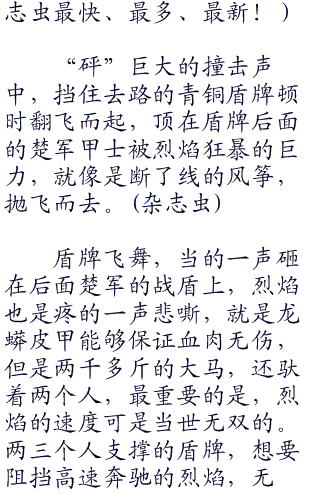 志虫最快、最多、最新！）
“砰”巨大的撞击声
中，挡住去路的青铜盾牌顿
时翻飞而起，顶在盾牌后面
的楚军甲士被烈焰狂暴的巨
力，就像是断了线的风筝，
抛飞而去。(杂志虫)
盾牌飞舞，当的一声砸
在后面楚军的战盾上，烈焰
也是疼的一声悲嘶，就是龙
蟒皮甲能够保证血肉无伤，
但是两千多斤的大马，还驮
着两个人，最重要的是，烈
焰的速度可是当世无双的。
两三个人支撑的盾牌，想要
阻挡高速奔驰的烈焰，无